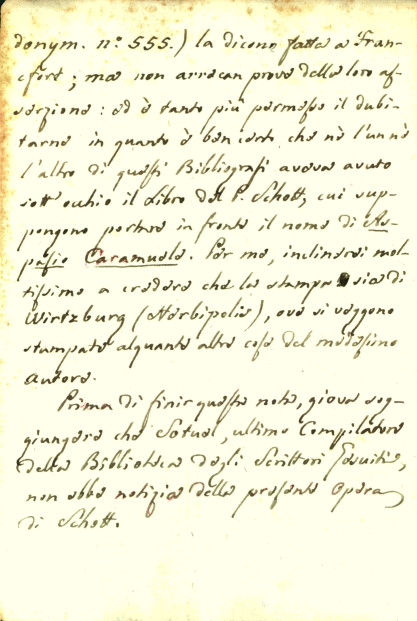 donym. n.º 555.) la dicono fatta a Fran-
cfort; ma non arrecan prova della loro as-
serzione: ed è tanto più permesso il dubi-
tarne in quanto è ben certo che nè l'un nè
l'altro di questi Bibliografi aveva avuto
sott'occhio il Libro del P. Schott, cui sup-
pongono portare in fronte il nome di As-
pasio Caramuele. Per me, inclinerei mol-
tissimo a credere che la stampa sia di
Wirtzburg (Herbipolis), ove si veggono
stampate alquante altre cose del medesimo
Autore.
Prima di finir questa nota, giova sog-
giungere che Sotuel, ultimo Compilatore
della Biblioteca degli Scrittori Gesuiti,
non ebbe notizia della presente Opera
di Schott.